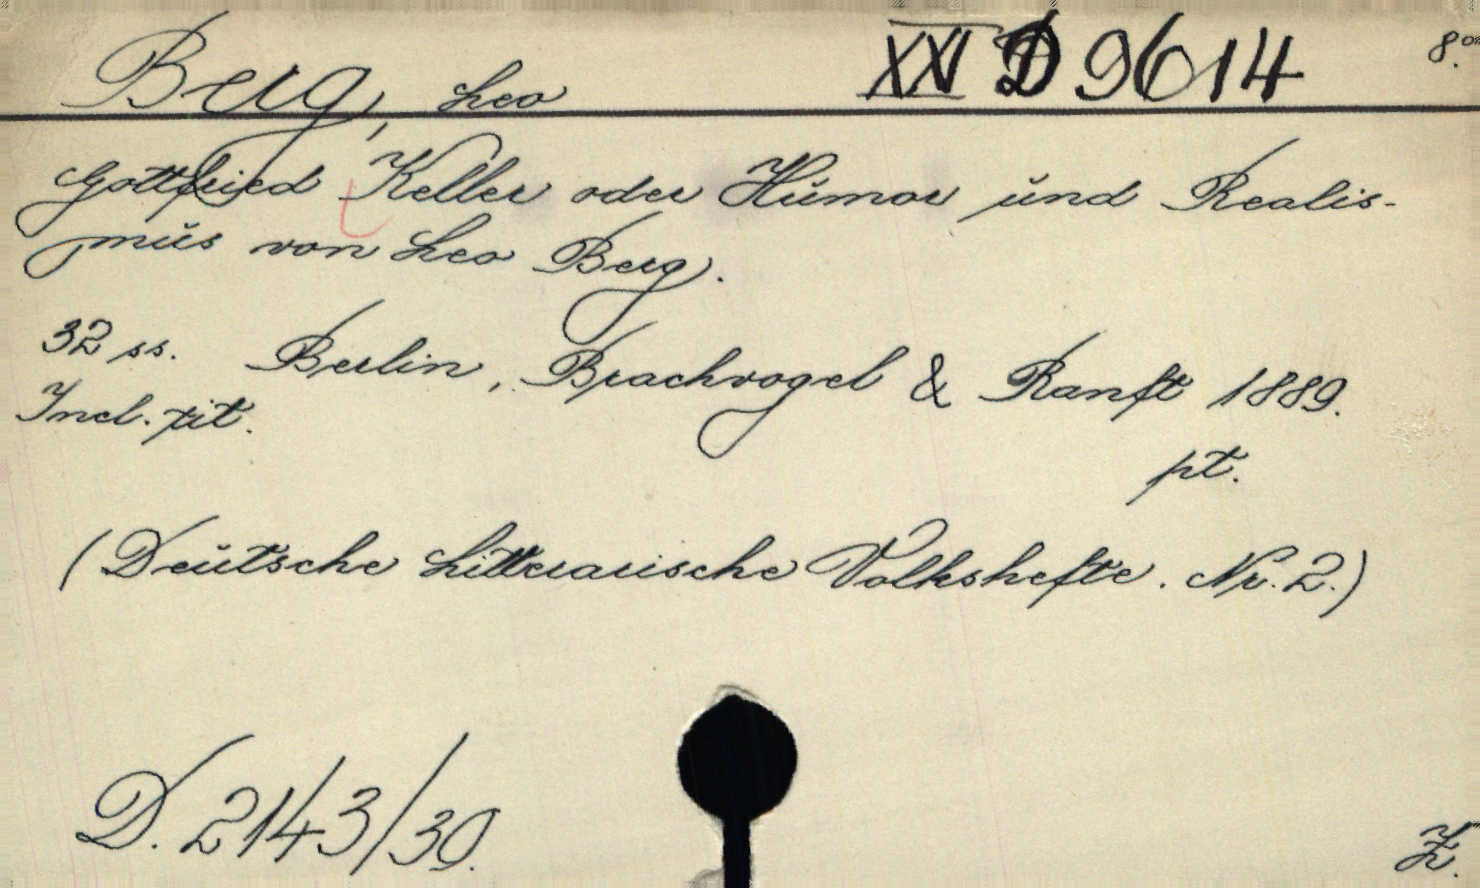 Berg, Leo XXI D 9614 8.o
Gottfried Keller oder Humor und Realis-
mus von Leo Berg.
32 ss. Berlin, Brachvogel & Ranft 1889.
Incl. tit.
pt.
(Deutsche Litterarische Volkshefte. Nr. 2.)
D. 2143/30.
Z.